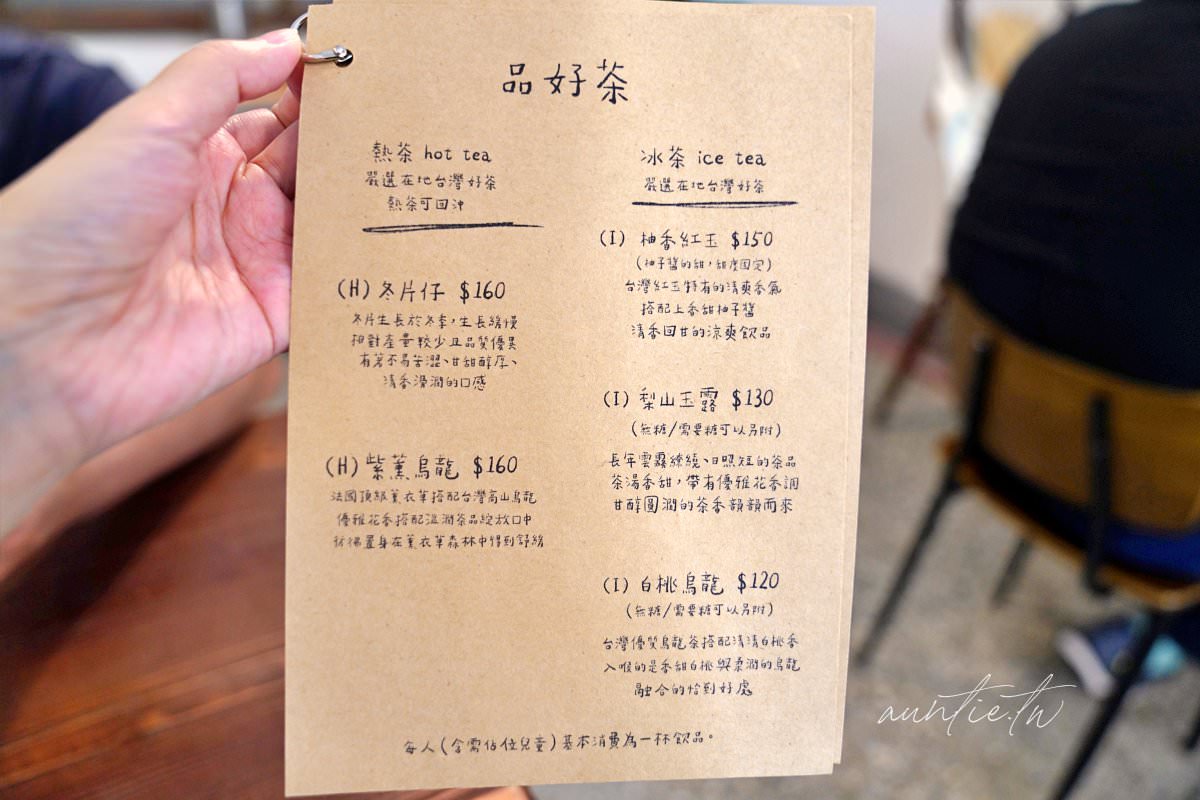 品好茶
熱茶 hot tea
嚴選在地台灣好茶
熱茶可回沖
(H) 冬片仔 $160
冬片生長於冬季，生長緩慢
相對產量較少且品質優異
有著不易苦澀、甘甜醇厚、
清香滑潤的口感
(H) 紫薰烏龍 $160
法國頂級薰衣草搭配台灣高山烏龍
優雅花香搭配溫潤茶品綻放口中
彷彿置身在薰衣草森林中得到舒緩
冰茶 ice tea
嚴選在地台灣好茶
(I) 柚香紅玉 $150
(柚子醬的甜，甜度固定)
台灣紅玉特有的清爽香氣
搭配上香甜柚子醬
清香回甘的涼爽飲品
(I) 梨山玉露 $130
(無糖/需要糖可以另附)
長年雲霧繚繞、日照短的茶品
茶湯香甜，帶有優雅花香調
甘醇圓潤的茶香韻韻而來
(I) 白桃烏龍 $120
(無糖/需要糖可以另附)
台灣優質烏龍茶搭配清清白桃香
入喉的是香甜白桃與柔潤的烏龍
融合的恰到好處
每人(含需佔位兒童)基本消費為一杯飲品。
auntie.tw